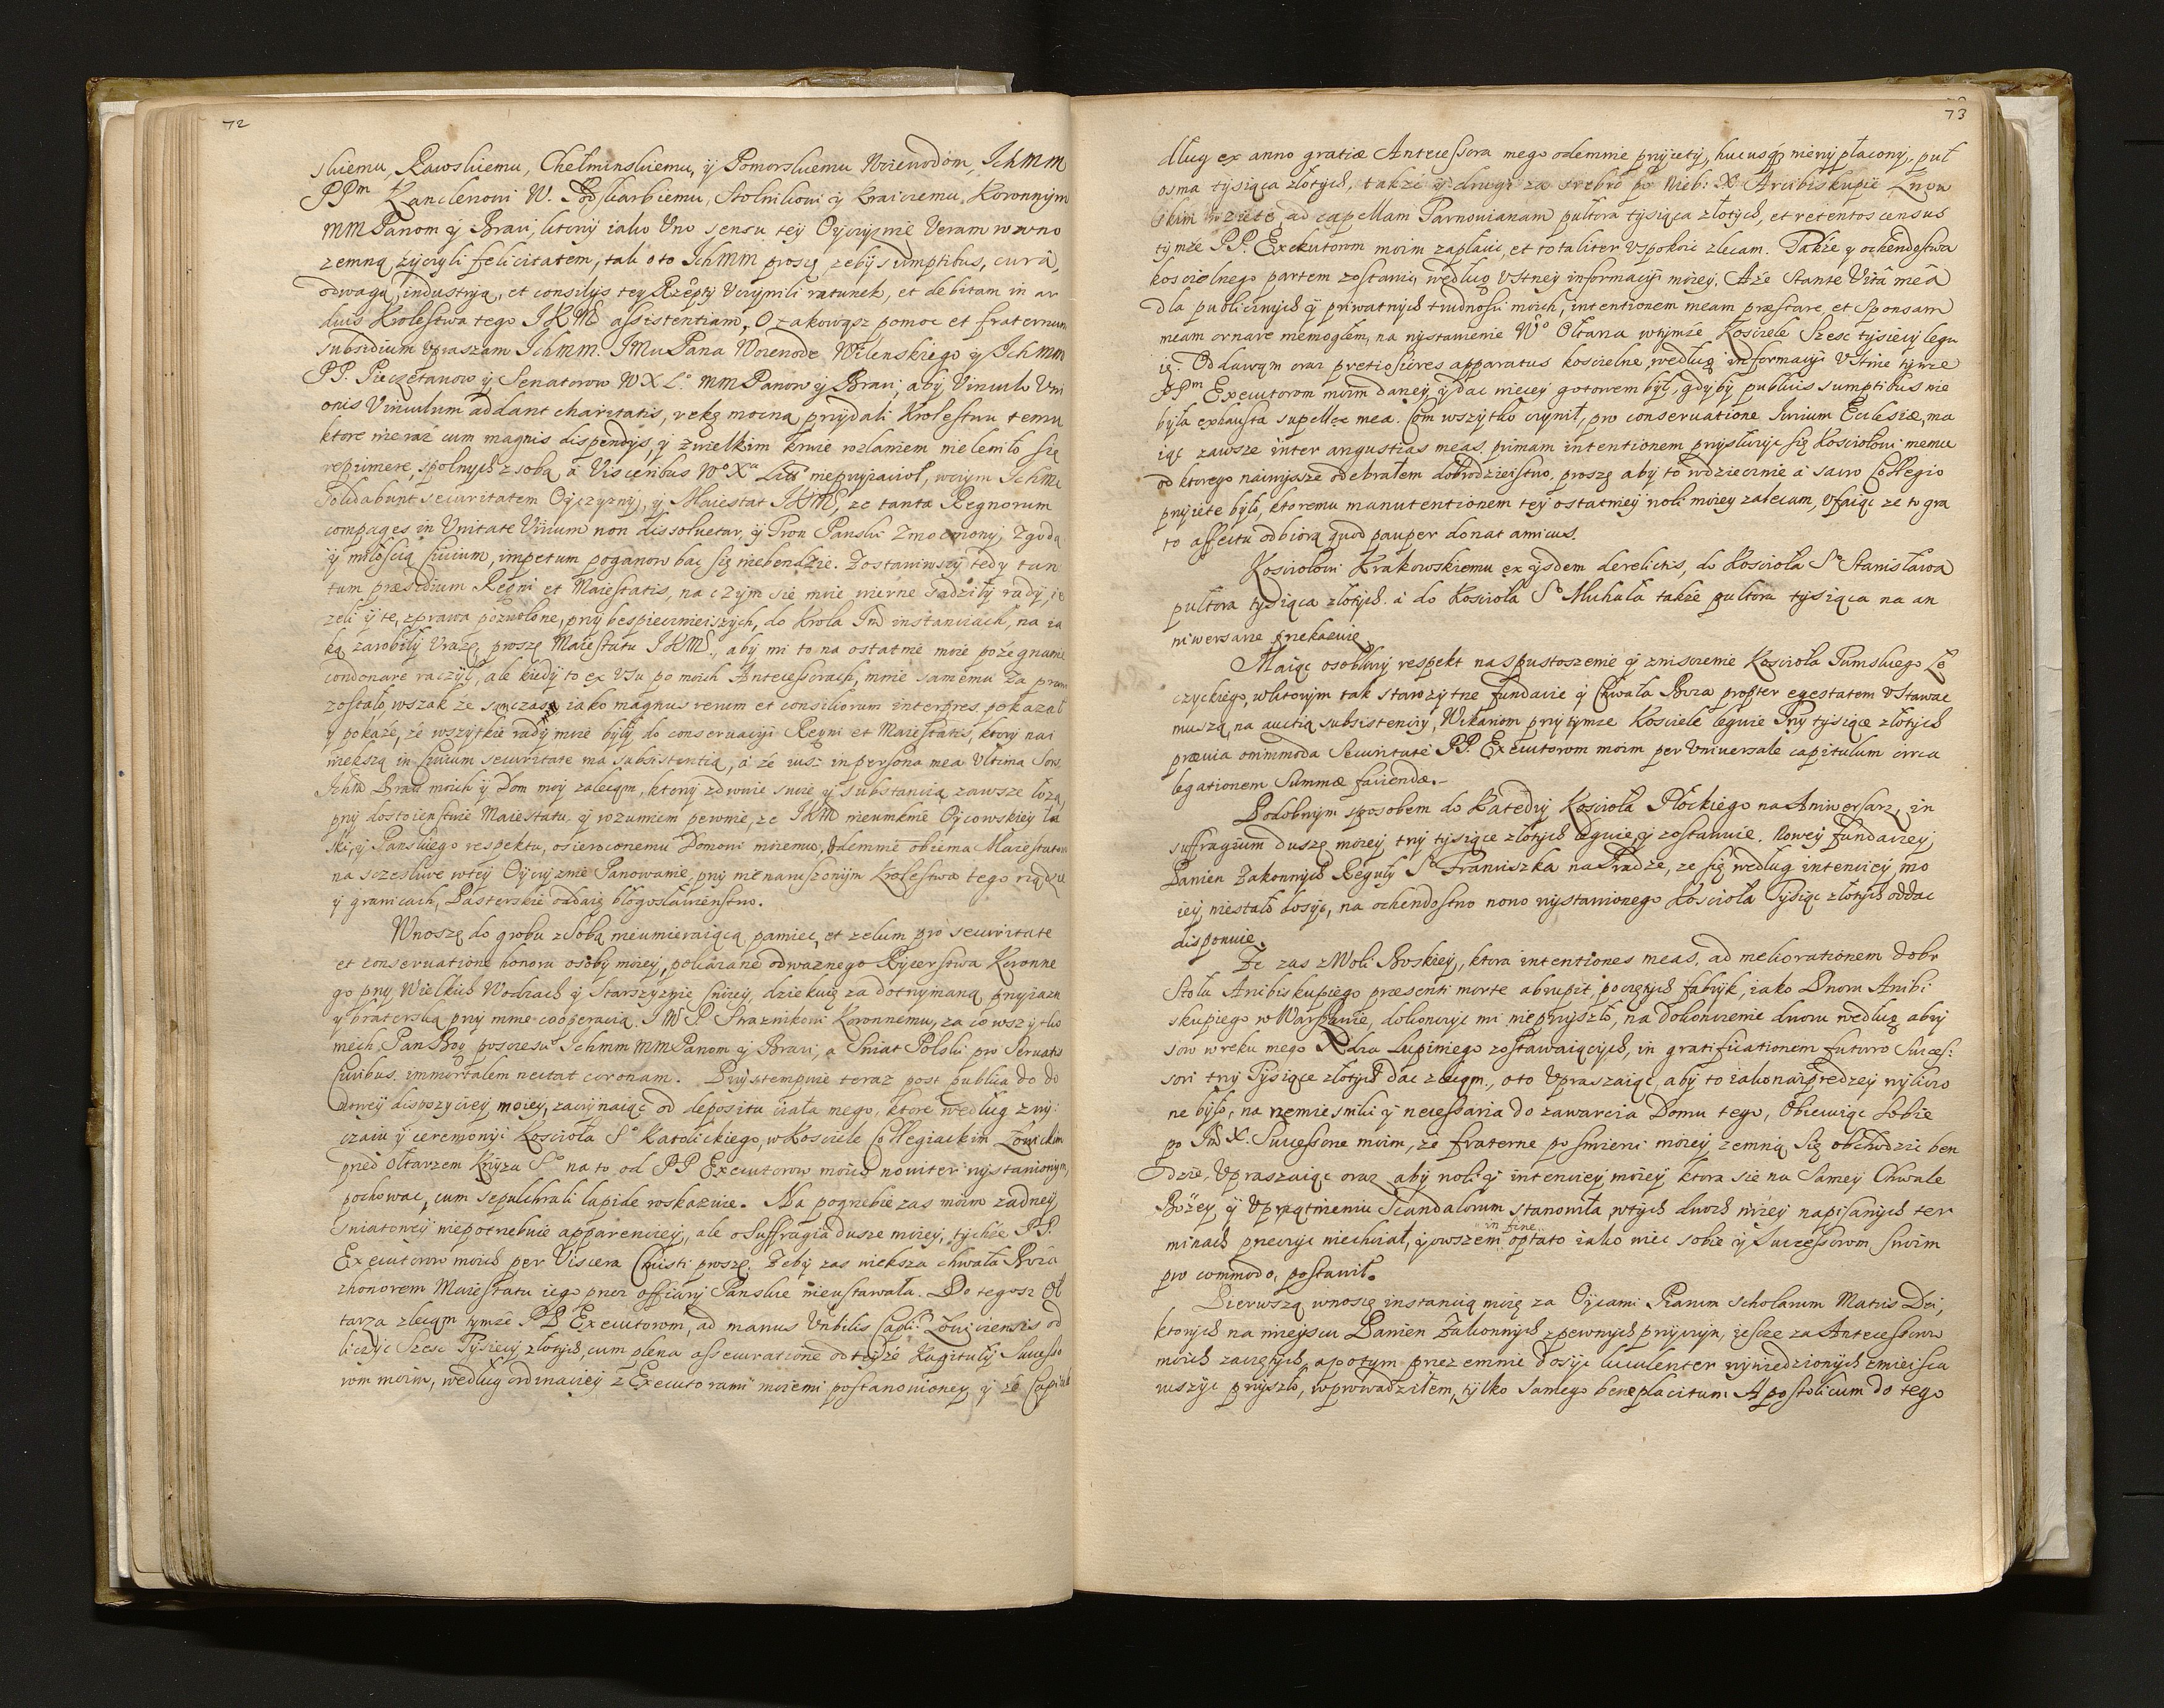 72
skiemu, Rawskiemu, Chełminskiemu, ÿ Pomorskiemu Woiewodom, Ichmm
PPm Kanclerzowi W. Podskarbiemu, Stolnikowi ÿ Kraiczemu, Koronnym
mm Panom ÿ Braci, ktorzÿ iako Uno sensu teÿ Oyczyznie Veram rowno
zemną zÿczyli felicitatem, tak o to Ichmm proszę zebÿ sumptibus, curâ,
odwagą, industryą, et consilÿs teÿ Rzeptÿ Vczÿnili ratunek, et debitam in ar
duis Krolestwa tego JKM assistentiam, O takowąsz pomoc et fraternum
subsidium Vpraszam Ichmm. JMu Pana Woiewodę Wilenskiego ÿ Ichmm
PP. Pieczętarzow ÿ Senatorow WXLo mm Panow ÿ Braci, abÿ Vinculo Vni
onis Vinculum addant charitatis, rekę mocną przÿdali Krolestwu temu
ktore nieraz cum magnis dispendÿs, ÿ zwielkim krwie rozlaniem nielenilo się
reprimere, spolnych zsobą a Visceribus Wo Xa Litt nieprzÿiacioł, wczym Ichmm
solidabunt securitatem Oyczyznÿ, ÿ Maiestat JKM, ze tanta Regnorum
compages in Unitate Virium non dissoluetur, ÿ Tron Panski Zmocniony Zgodą
ÿ miłoscią Ciuium, impetum poganow bac się niebendzie. Zostawiwszÿ tedy tan
tum præsidium Regni et Maiestatis, na czÿm sie mnie wierne sądziłÿ radÿ, ie
zeli ÿ te, zprawa pozwolone, przÿ bespiecznieiszych, do Krola Jm instanciach, na ia
ką zarobiłÿ Vrazę, proszę Maiestatu JKM., abÿ mi to na ostatnie moie pozegnanie
condonare raczÿł, ale kiedÿ to ex Vsu po moich Antecessorach, mnie samemu za prawo
zostało, wszak ze sam czas iako magnus rerum et consiliorum interpres, pokazał
ÿ pokaze, ze wszÿtkie radÿ moie bÿlÿ do conseruacÿi Regni et Maiestatis, ktorÿ nai
wiekszą in Ciuium securitate ma subsistentią, a ze iusz in persona mea Vltima Sors
Ichm Braci moich ÿ Dom moÿ zalecam, ktorÿ zdrowie swoie ÿ substancią zawsze łozą,
przÿ dostoienstwie Maiestatu ÿ rozumiem pewnie, ze JKM nieumknie Oycowskieÿ ła
ski, ÿ Panskiego respektu, osieroconemu Domowi moiemu, Odemnie obiema Maiestatom
na sczesliwe wteÿ Oyczyznie Panowanie, przÿ nienaruszonÿm Krolestwa tego rządzie
ÿ granicach, Pasterskie oddaię błogosławienstwo.
Wnoszę do grobu zsobą nieumieraiącą pamiec, et zelum pro securitate
et conseruatione honoru osobÿ moieÿ, pokazane odwaznego Rÿcerstwa Koronne
go przÿ Wielkich Wodzach ÿ Starszÿznie swoieÿ, dziekuię za dotrzymaną przyiazn
ÿ braterską przÿ mnie cooperacią. JM P. Straznikowi Koronnemu, za co wszÿtko
niech Pan Bog poszczesci Ichmm mm Panom ÿ Braci, a Swiat Polski pro Seruatis
Ciuibus immortalem nectat coronam. Przÿstempuię teraz post publica do do
moweÿ dispozyciey moiey, zaczÿnaiąc od depositu ciała mego, ktore według zwÿ
czaiu ÿ ceremonÿi Koscioła So Katolickiego, w Kosciele Collegiackim Łowickim
przed Ołtarzem Krzyza So na to od PP Executorow moich nowiter wystawionym,
pochowac, cum sepulchrali lapide wskazuie. Na pogrzebie zas moim zadneÿ
swiatoweÿ niepotrzebuię apparencieÿ, ale o suffragia dusze moieÿ, tychze PP.
Executorow moich per Viscera Christi proszę. Zebÿ zas wieksza chwała Boza
zhonorem Maiestatu iego przez offiarÿ Panskie nieustawała. Do tegosz Oł
tarza zlecąm tymze PP Executorom, ad manus Vnbilis Capli Łowiciensis od
liczyc Szesc Tÿsiecÿ złotych, cum plena assecuratione od teyze Kapitułÿ Successo
rom moim, według ordinacieÿ z Executorami moiemi postanowioney ÿ ze Capitul
73
dług ex anno gratiæ Antecessora mego odemnie przÿiety, hucusq niewypłacony, puł
osma tysiąca złotych, takze ÿ drugi za srebro po Nieb: X Arcibiskupie Lnow
skim wziete, ad capellam Tarnouianam pułtora tysiąca złotych, et retentos census
tymze PP. Exekutorom moim zapłacic, et totaliter Vspokoic zlecam. Takze ÿ ochendostwa
koscielnego partem zostawię według Vstney informacÿi moieÿ. A ze stante Vitâ meâ
dla publicznych ÿ priwatnych trudnosci moich, intentionem meam præstare, et Sponsam
meam ornare niemogłem, na wystawienie Wo Ołtarza wtymze Kosciele Szesc tysiecÿ legu
ię. Oddawąm oraz pretiosiores apparatus koscielne według informacÿi Vstnie tymze
PPm Executorom moim daneÿ ÿ dac wieceÿ gotowem był, gdÿbÿ publicis sumptibus nie
była exhausta supellex mea. Com wszÿtko czynił, pro conseruatione Iurium Ecclesiæ, ma
iąc zawsze inter angustias meas primam intentionem przÿsłuzÿc się Kosciołowi memu
od ktorego naiwysze odebrałem dobrodzieistwo, proszę abÿ to wdziecznie a sacro Collegio
przÿiete było, ktoremu manutentionem teÿ ostatnieÿ woli moieÿ zalecam, Vfaiąc ze to gra
to affectu odbiorą quod pauper donat amicus.
Kosciołowi Krakowskiemu ex ÿsdem derelictis, do Koscioła So Stanisława
pułtora tysiąca złotych a do Koscioła So Michała takze pułtora tysiąca na an
niwersarze przekazuię
Maiąc osobliwÿ respekt na spustoszenie ÿ zniszczenie Koscioła Tumskiego Łę
czyckiego, wktorym tak starozÿtne fundacie ÿ Chwała Boza propter egestatem Vstawac
muszą, na auctią subsistenciÿ, Wikariom przÿ tymze Kosciele leguie Trzÿ tysiące złotych
præuia omnimoda Securitate PP. Executorom moim per Vniuersale capitulum circa
legationem Summæ faciendæ.
Podobnym sposobem do Katedrÿ Koscioła Płockiego na Aniwersarz, in
suffragium duszę moieÿ, trzÿ tysiące złotych leguię ÿ zostawuie. Noweÿ fundacieÿ
Panien Zakonnych Regułÿ So Franciszka na Pradze, ze się według intencieÿ mo
ieÿ niestało dosÿc, na ochendostwo nowo wystawionego Koscioła Tysiąc złotych oddac
disponuie.
Ze zas zWoli Boskieÿ, ktora intentiones meas ad meliorationem dobr
Stołu Arcibiskupiego præsenti morte abrupit, poczętych fabryk, iako Dworu Arcibi
skupiego w Warszawie, dokonczyc mi nieprzyszło, na dokonczenie dworu według abry
sow w reku mego Xdza Lupiniego zostawaiących, in gratificationem futuro Succes:
sori trzÿ Tysiące złotych dac zlecąm, o to Vpraszaiąc, abÿ to iako naiprędzey wyliczo
ne było, na rzemiesniki ÿ necessaria do zawarcia Domu tego, Obiecuiąc sobie
po Jm X. Successorze moim, ze fraterne po smierci moieÿ zemną się obchodzic ben
dzie, Vpraszaiąc oraz abÿ woli ÿ intencieÿ moieÿ, ktora sie na Sameÿ Chwale
Bozeÿ ÿ Vprzątnieniu Scandalorum stanowiła wtych dwoch nizeÿ napisanych ter
minach przeczyc niechciał, ÿ owszem in fine optato iako wiec sobie ÿ Successorom swoim
pro commodo, postawił.
Pierwszą wnoszę instancią moię za Oycami Piarum Scholarum Matris Dei,
ktorych na mieyscu Panien Zakonnych zpewnych przÿczyn, iescze za Antecessorow
moich zaczętych, a potym przezemnie dosÿc luculenter wywiedzionych zmieisca
ruszÿc przyszło, wprowadziłem, tylko samego beneplacitum Apostolicum do tego